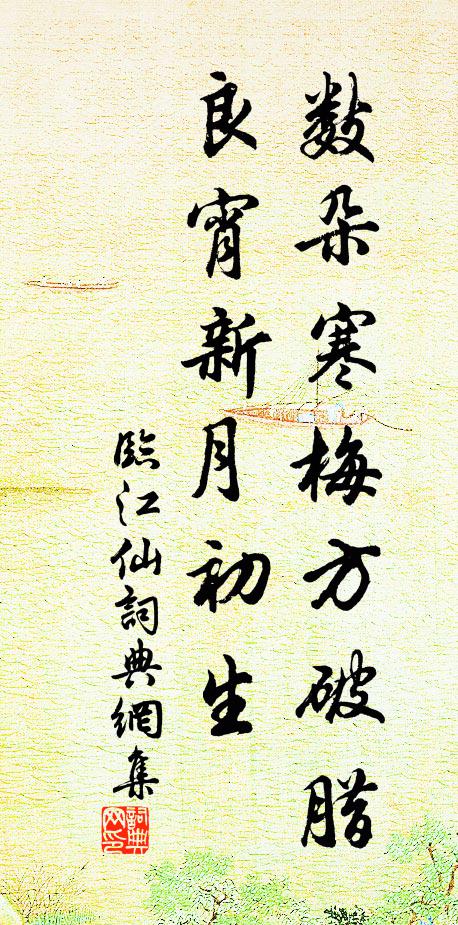 数朵寒梅方破腊
良宵新月初生
臨江仙詞典網集
詞典网印